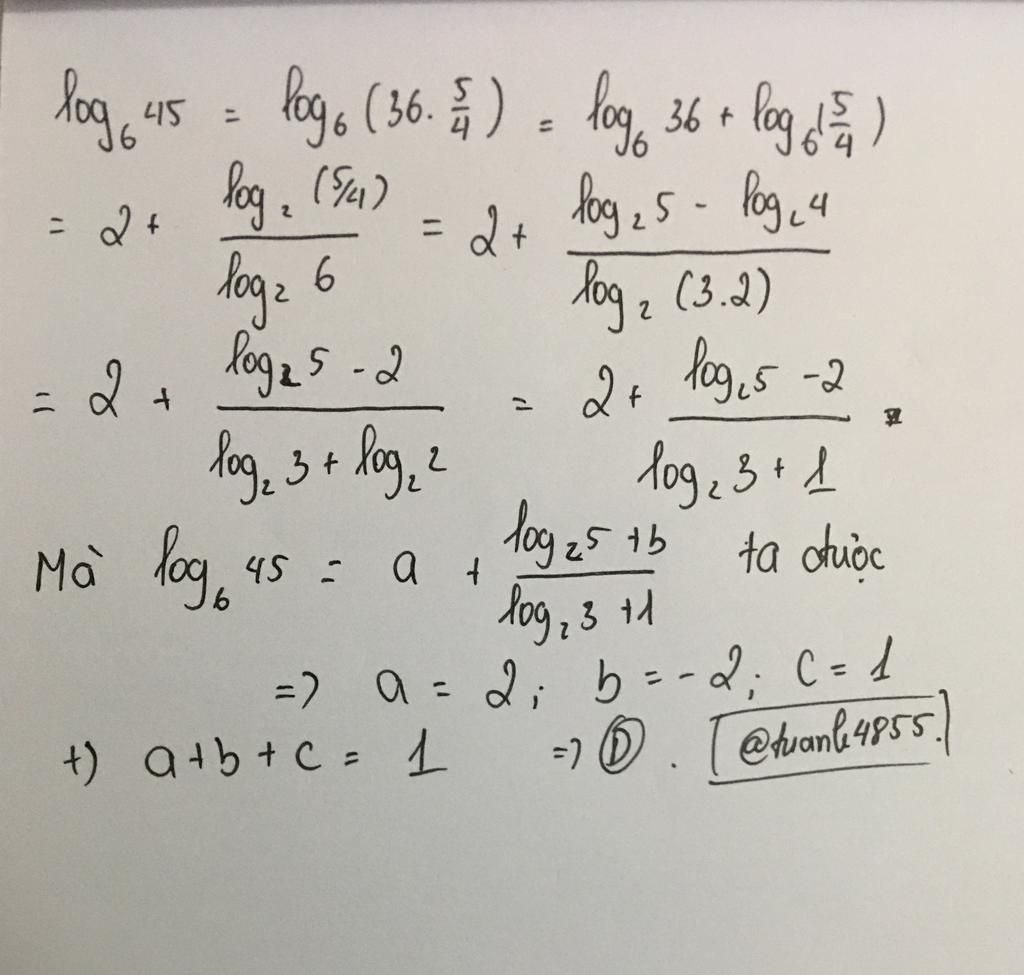 log₆ 45 = log₆ (36. 5/4) = log₆ 36 + log₆(5/4)
= 2 + log₂ (5/4) / log₂ 6 = 2 + (log₂ 5 - log₂ 4) / log₂ (3.2)
= 2 + (log₂ 5 - 2) / (log₂ 3 + log₂ 2) = 2 + (log₂ 5 - 2) / (log₂ 3 + 1) .
Mà log₆ 45 = a + (log₂ 5 + b) / (log₂ 3 + 1) ta được
=> a = 2; b = -2; c = 1
+) a + b + c = 1 => Ⓓ .